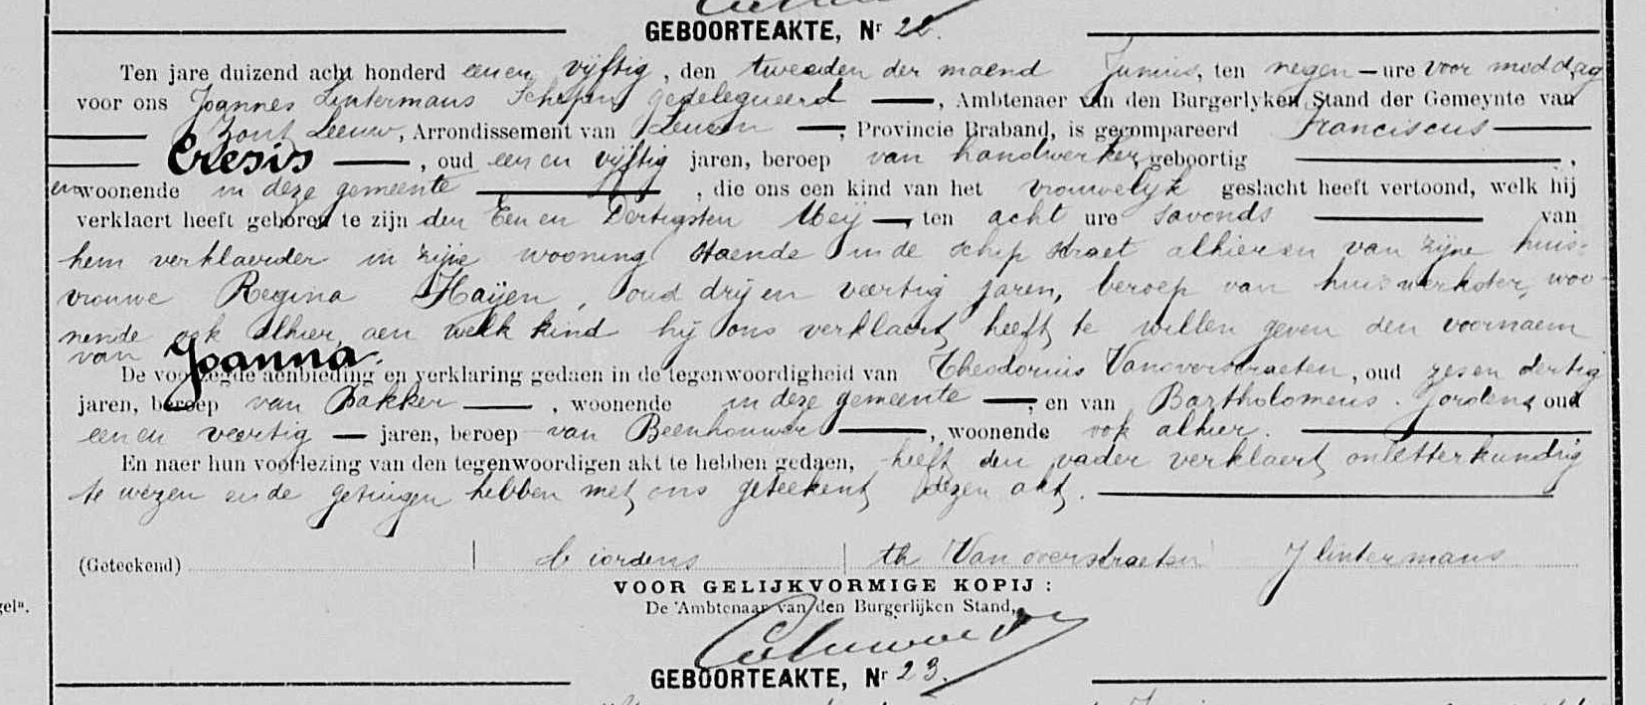 GEBOORTEAKTE, Nr 22.
Ten jare duizend acht honderd een en vijftig, den tweeden der maend Junius, ten negen — ure voor middag
voor ons Joannes Lintermans Schepen gedelegueerd —, Ambtenaer van den Burgerlyken Stand der Gemeynte van
Zout Leeuw, Arrondissement van Leuven —, Provincie Braband, is gecompareerd Franciscus —
Cresis —, oud een en vijftig jaren, beroep van handwerker geboortig —,
en woonende in deze gemeente —, die ons een kind van het vrouwelijk geslacht heeft vertoond, welk hij
verklaert heeft geboren te zijn den Een en Dertigsten Meij — ten acht ure savonds — van
hem verklaerder in zijne wooning staende in de schip straet alhier en van zijne huis-
vrouwe Regina Haijen, oud drij en veertig jaren, beroep van huiswerkster, woo-
nende ook alhier, aen welk kind hij ons verklaert heeft te willen geven den voornaem
van Joanna.
De voorzegde aenbieding en verklaring gedaen in de tegenwoordigheid van Theodorius Vanoverstraeten, oud zes en dertig
jaren, beroep van Bakker —, woonende in deze gemeente —, en van Bartholomeus Jordens oud
een en veertig — jaren, beroep van Beenhouwer —, woonende ook alhier. —
En naer hun voorlezing van den tegenwoordigen akt te hebben gedaen, heeft den vader verklaert onletterkundig
te wezen en de getuigen hebben met ons geteekent dezen akt. —
(Geteekend) b iordens th Van overstraeten J lintermans
VOOR GELIJKVORMIGE KOPIJ :
De Ambtenaar van den Burgerlijken Stand,
GEBOORTEAKTE, Nr 23.